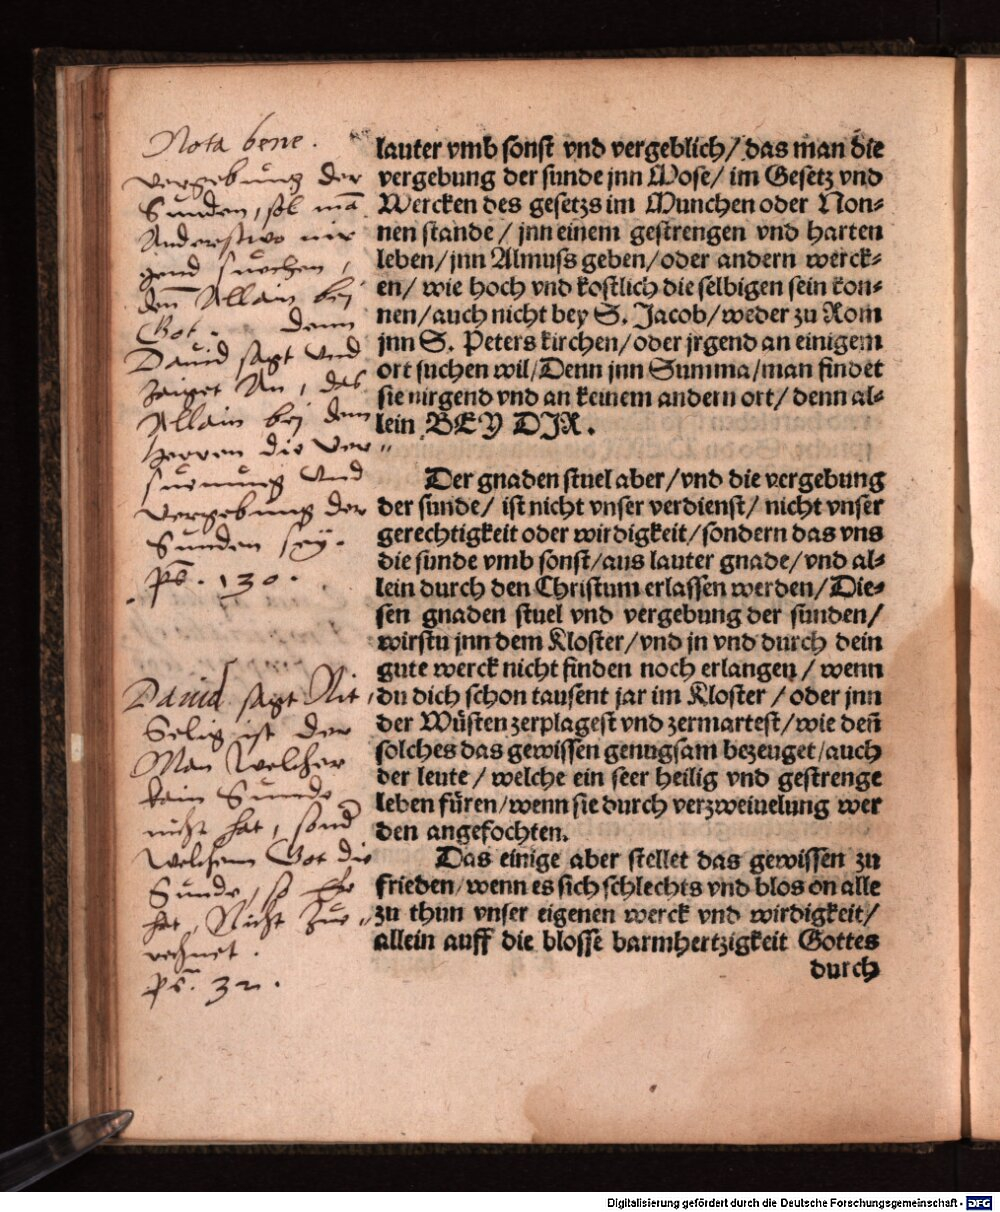 Nota bene.
vergebung der
Sunden, sol mā
Anderstwo nir
gend suechen,
den Allain bej
Got. denn
Dauid sagt Vnd
zaiget An, das
Allain bej dem
Herren die Ver-
suenung Vnd
vergebung der
Sunden seÿ.
Ps. 130.
Dauid sagt Nit,
Selig ist der
Man Welcher
kain Sunde
nicht hat, sond
Welchem Got die
Sunde, so Ehr
hat, Nicht Zue-
rechnet.
Ps. 32.
lauter vmb sonst vnd vergeblich/ das man die
vergebung der sunde jnn Mose/ im Gesetz vnd
Wercken des gesetzs im Munchen oder Non-
nen stande/ jnn einem gestrengen vnd harten
leben/ jnn Almuss geben/ oder andern werck-
en/ wie hoch vnd kostlich die selbigen sein kon-
nen/ auch nicht bey S. Jacob/ weder zu Rom
jnn S. Peters kirchen/ oder jrgend an einigem
ort suchen wil/ Denn jnn Summa/ man findet
sie nirgend vnd an keinem andern ort/ denn al-
lein BEY DJR.
Der gnaden stuel aber/ vnd die vergebung
der sunde/ ist nicht vnser verdienst/ nicht vnser
gerechtigkeit oder wirdigkeit/ sondern das vns
die sunde vmb sonst/ aus lauter gnade/ vnd al-
lein durch den Christum erlassen werden/ Die-
sen gnaden stuel vnd vergebung der sunden/
wirstu jnn dem Kloster/ vnd jn vnd durch dein
gute werck nicht finden noch erlangen/ wenn
du dich schon tausent jar im Kloster/ oder jnn
der Wüsten zerplagest vnd zermartest/ wie deñ
solches das gewissen genugsam bezeuget/ auch
der leute/ welche ein seer heilig vnd gestrenge
leben füren/ wenn sie durch verzweiuelung wer
den angefochten.
Das einige aber stellet das gewissen zu
frieden/ wenn es sich schlechts vnd blos on alle
zu thun vnser eigenen werck vnd wirdigkeit/
allein auff die blosse barmhertzigkeit Gottes
durch
Digitalisierung gefördert durch die Deutsche Forschungsgemeinschaft - DFG